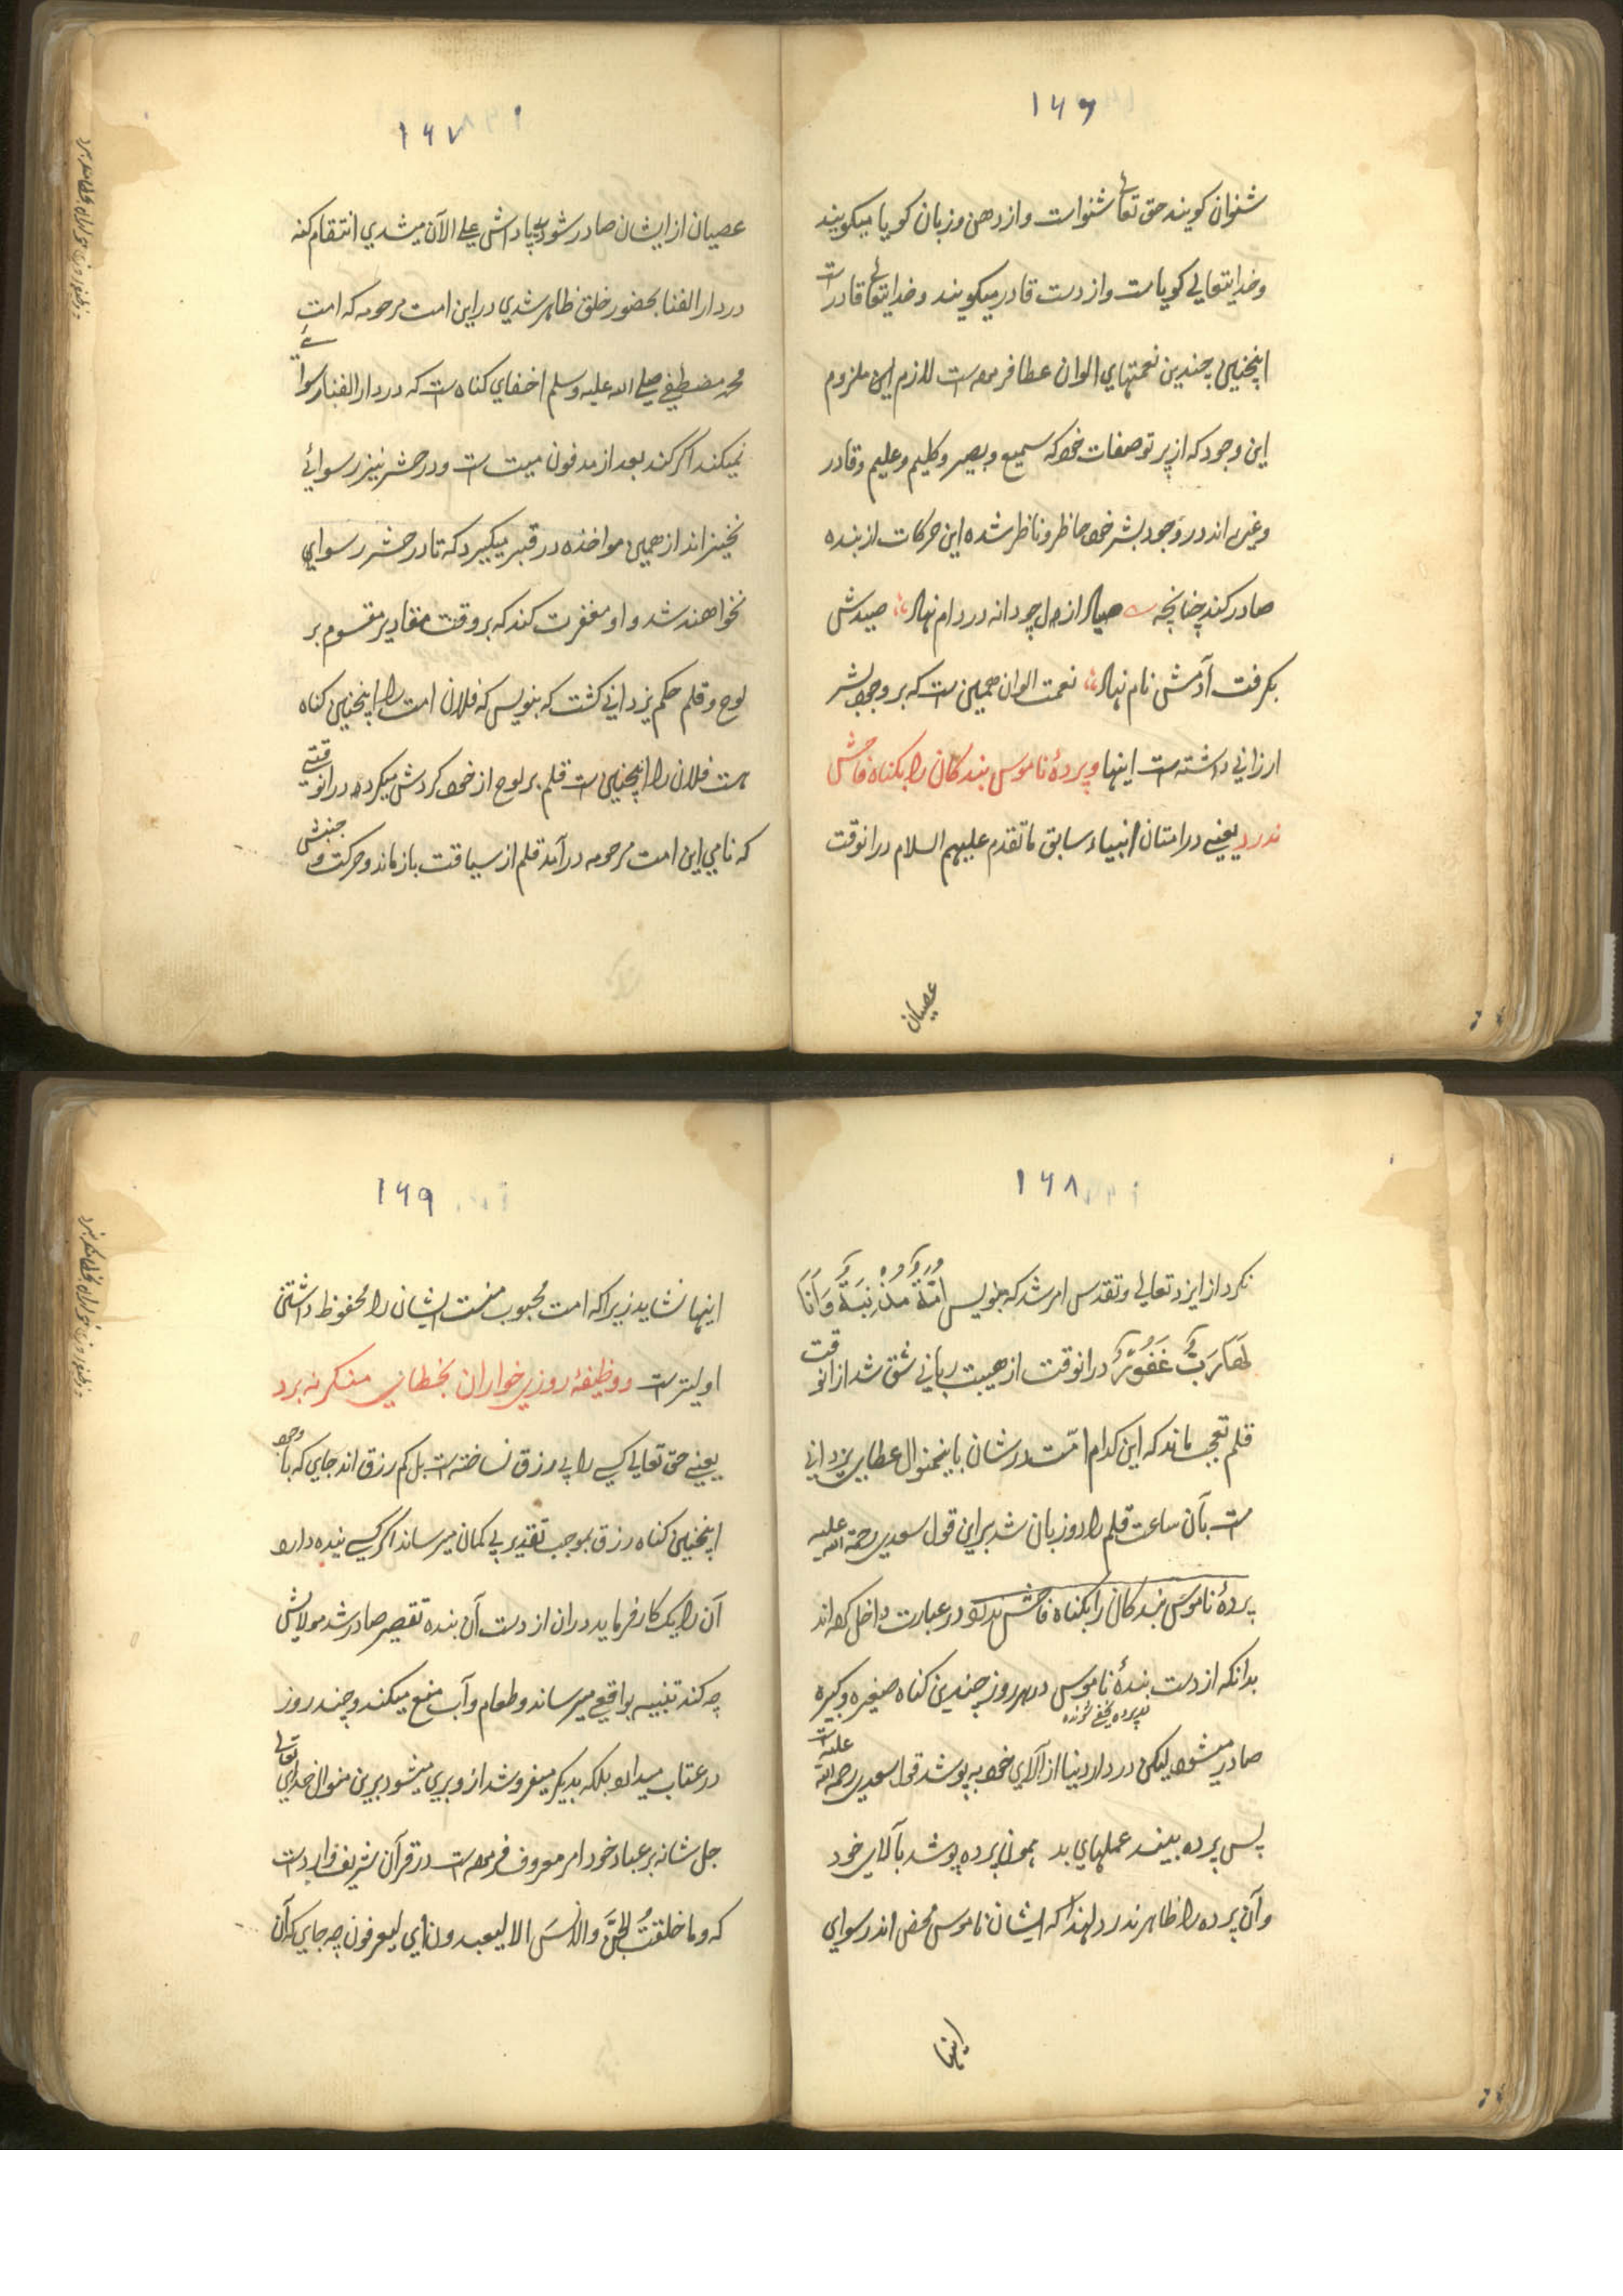 ۱۶۶
شنوان کویند حق تعالی شنواست واز دهن وزبان کویا میکویند
وخدایتعالی کویاست واز دست قادر میکویند وخدایتعالی قادر است
اینچنین چندین نعمتهای الوان عطا فرموده است لازم این ملزوم
این وجود که از پرتو صفات خود که سمیع وبصیر وکلیم وعلیم وقادر
وغیره اند در وجود بشر خود حاظر وناظر شده این حرکات از بنده
صادر کند چنانچه صیاد ازل چو دانه در دام نهاد صیدش
بکرفت آدمش نام نهاد نعمت الوان همین است که بر وجود بشر
ارزانی داشته است اینها وپردهٔ ناموس بندکان را بکناه فاحش
ندرد یعنی در امتان انبیاء سابق ما تقدم علیهم السلام در انوقت
عصیان
۱۶۷
عصیان از ایشان صادر شود پاداش علی الآن میشدی انتقام کنه
در دار الفنا بحضور خلق ظاهر شدی در این امت مرحومه که امت
محمد مصطفی صلی الله علیه وسلم اخفای کناه است که در دار الفنا رسوائے
نمیکند اکر کند بعد از مدفون میت است ودر حشر نیز رسوائے
نخیزاند از همین مواخذه در قبر میکیرد که تا در حشر رسوای
نخواهند شد و او مغفرت کند که بر وقت مقادیر مقسوم بر
لوح وقلم حکم یزدانی کشت که بنویس که فلان امت را اینچنین کناه
است فلان را اینچنین است قلم بر لوح از خود کردش میکرد در انوقتے
که نامی این امت مرحومه در آمد قلم از سیاقت باز ماند وحرکت و جنبشی
۱۶۸
نکرد از ایزد تعالی وتقدس امر شد که بنویس اُمَّةٌ مُذْنِبَةٌ وَاَنَا
لَهَا رَبٌّ غَفُوْرٌ در انوقت از هیبت ربانی شق شد از انوقت
قلم تعجب ماند که این کدام امّت در شان باینمنوال عطای یزدانی
است بآن ساعت قلم را دو زبان شد بر این قول سعدی رحمة الله علیه
پردهٔ ناموس بندکان را بکناه فاحش ندرد در عبارت داخل کرده اند
بدانکه از دست بندهٔ ناموس در هر روز چندین کناه صغیره وکبیره
صادر میشود لیکن در دار دنیا از آلای خود به پوشد قول سعدی رحمة الله علیه است
پس پرده بیند عملهای بد همون پرده پوشد بآلای خود
وآن پرده را ظاهر ندرد لهذا که ایشان ناموس محض اند رسوای
اینها
۱۶۹
اینها نشاید زیرا که امت محبوب منست ایشان را محفوظ داشتنی
اولیتر است ووظیفهٔ روزی خواران بخطای منکر نبرد
یعنی حق تعالی کسی را بی رزق نساخته است بل کم رزق اند جای که با وجود
اینچنین کناه رزق بموجب تقدیر بی کمان میرساند اکر کسی بنده دارد
آن را یک کار فرماید در ان از دست آن بنده تقصیر صادر شد مولایش
چه کند تنبیه بواقعی میرساند وطعام وآب منع میکند وچند روز
در عقاب میدارد بلکه بدیکر میفروشد از و بری میشود برین منوال خدای تعالی
جل شانه بر عباد خود امر معروف فرموده است در قرآن شریف وارد است
که وما خلقتُ الجنَّ والانسَ الا لیعبدون ای لیعرفون چه جای که آن